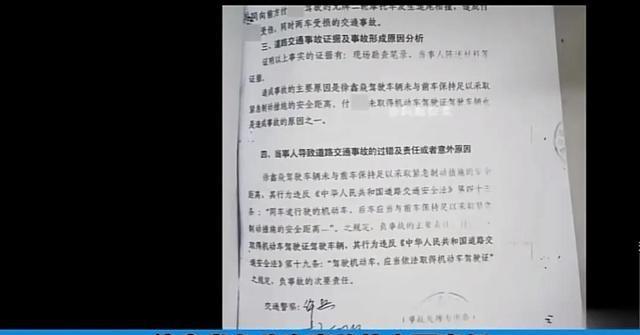 同向前方付 驾驶的无牌二轮摩托车发生追尾相撞，造成付
受伤，同时两车受损的交通事故。
三、道路交通事故证据及事故形成原因分析
证明以上事实的证据有：现场勘查笔录、当事人陈述材料等
证据。
造成事故的主要原因是徐鑫焱驾驶车辆未与前车保持足以采取
紧急制动措施的安全距离，付 未取得机动车驾驶证驾驶车辆也
是造成事故的原因之一。
四、当事人导致道路交通事故的过错及责任或者意外原因
徐鑫焱驾驶车辆未与前车保持足以采取紧急制动措施的安全
距离，其行为违反《中华人民共和国道路交通安全法》第四十三
条：“同车道行驶的机动车，后车应当与前车保持足以采取紧急
制动措施的安全距离…”之规定，负事故的主要责任
取得机动车驾驶证驾驶车辆，其行为违反《中华人民共和国道路交
通安全法》第十九条：“驾驶机动车，应当依法取得机动车驾驶证”
之规定，负事故的次要责任。
交通警察：